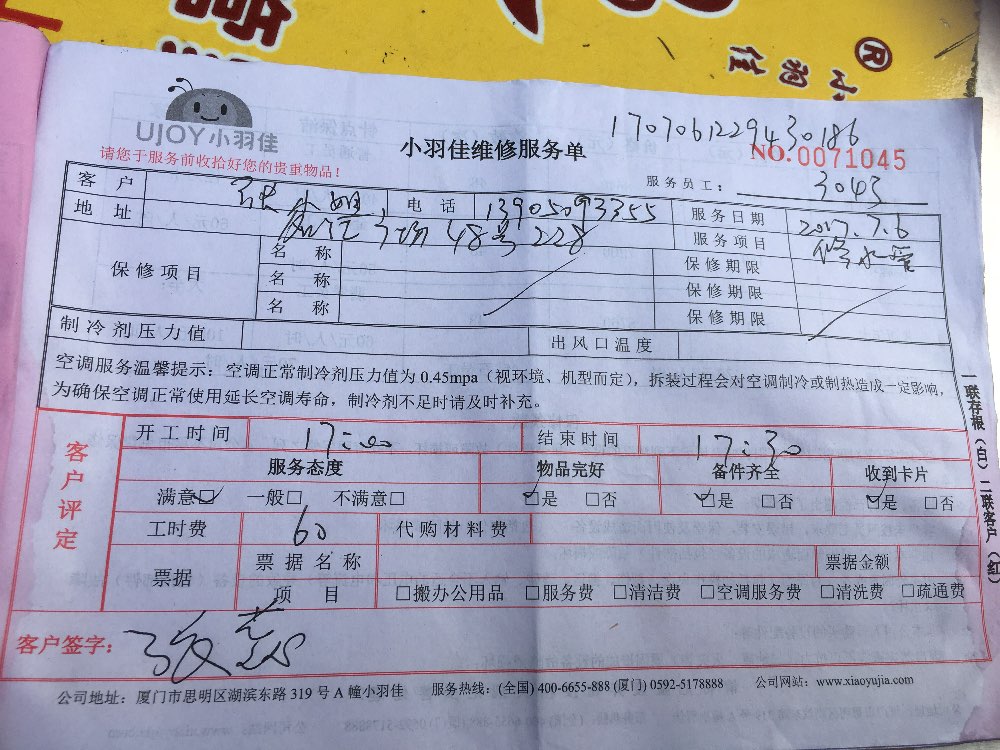 小羽佳
®
UJOY小羽佳
请您于服务前收拾好您的贵重物品！
小羽佳维修服务单
1707061229430186
NO.0071045
服务员工： 3043
客户 张小姐 电话 13905093355 服务日期 2017.7.6
地址 广场48号228 服务项目 修水管
保修项目 名称 保修期限
名称 保修期限
名称 保修期限
制冷剂压力值 出风口温度
空调服务温馨提示：空调正常制冷剂压力值为0.45mpa（视环境、机型而定），拆装过程会对空调制冷或制热造成一定影响，
为确保空调正常使用延长空调寿命，制冷剂不足时请及时补充。
客户评定
开工时间 17:00 结束时间 17:30
服务态度 物品完好 备件齐全 收到卡片
满意☑ 一般□ 不满意□ ☑是 □否 ☑是 □否 ☑是 □否
工时费 60 代购材料费
票据 票据名称 票据金额
项目 □搬办公用品 □服务费 □清洁费 □空调服务费 □清洗费 □疏通费
客户签字： 张燕
公司地址：厦门市思明区湖滨东路319号A幢小羽佳 服务热线：(全国) 400-6655-888 (厦门) 0592-5178888 公司网站：www.xiaoyujia.com
一联存根（白）二联客户（红）